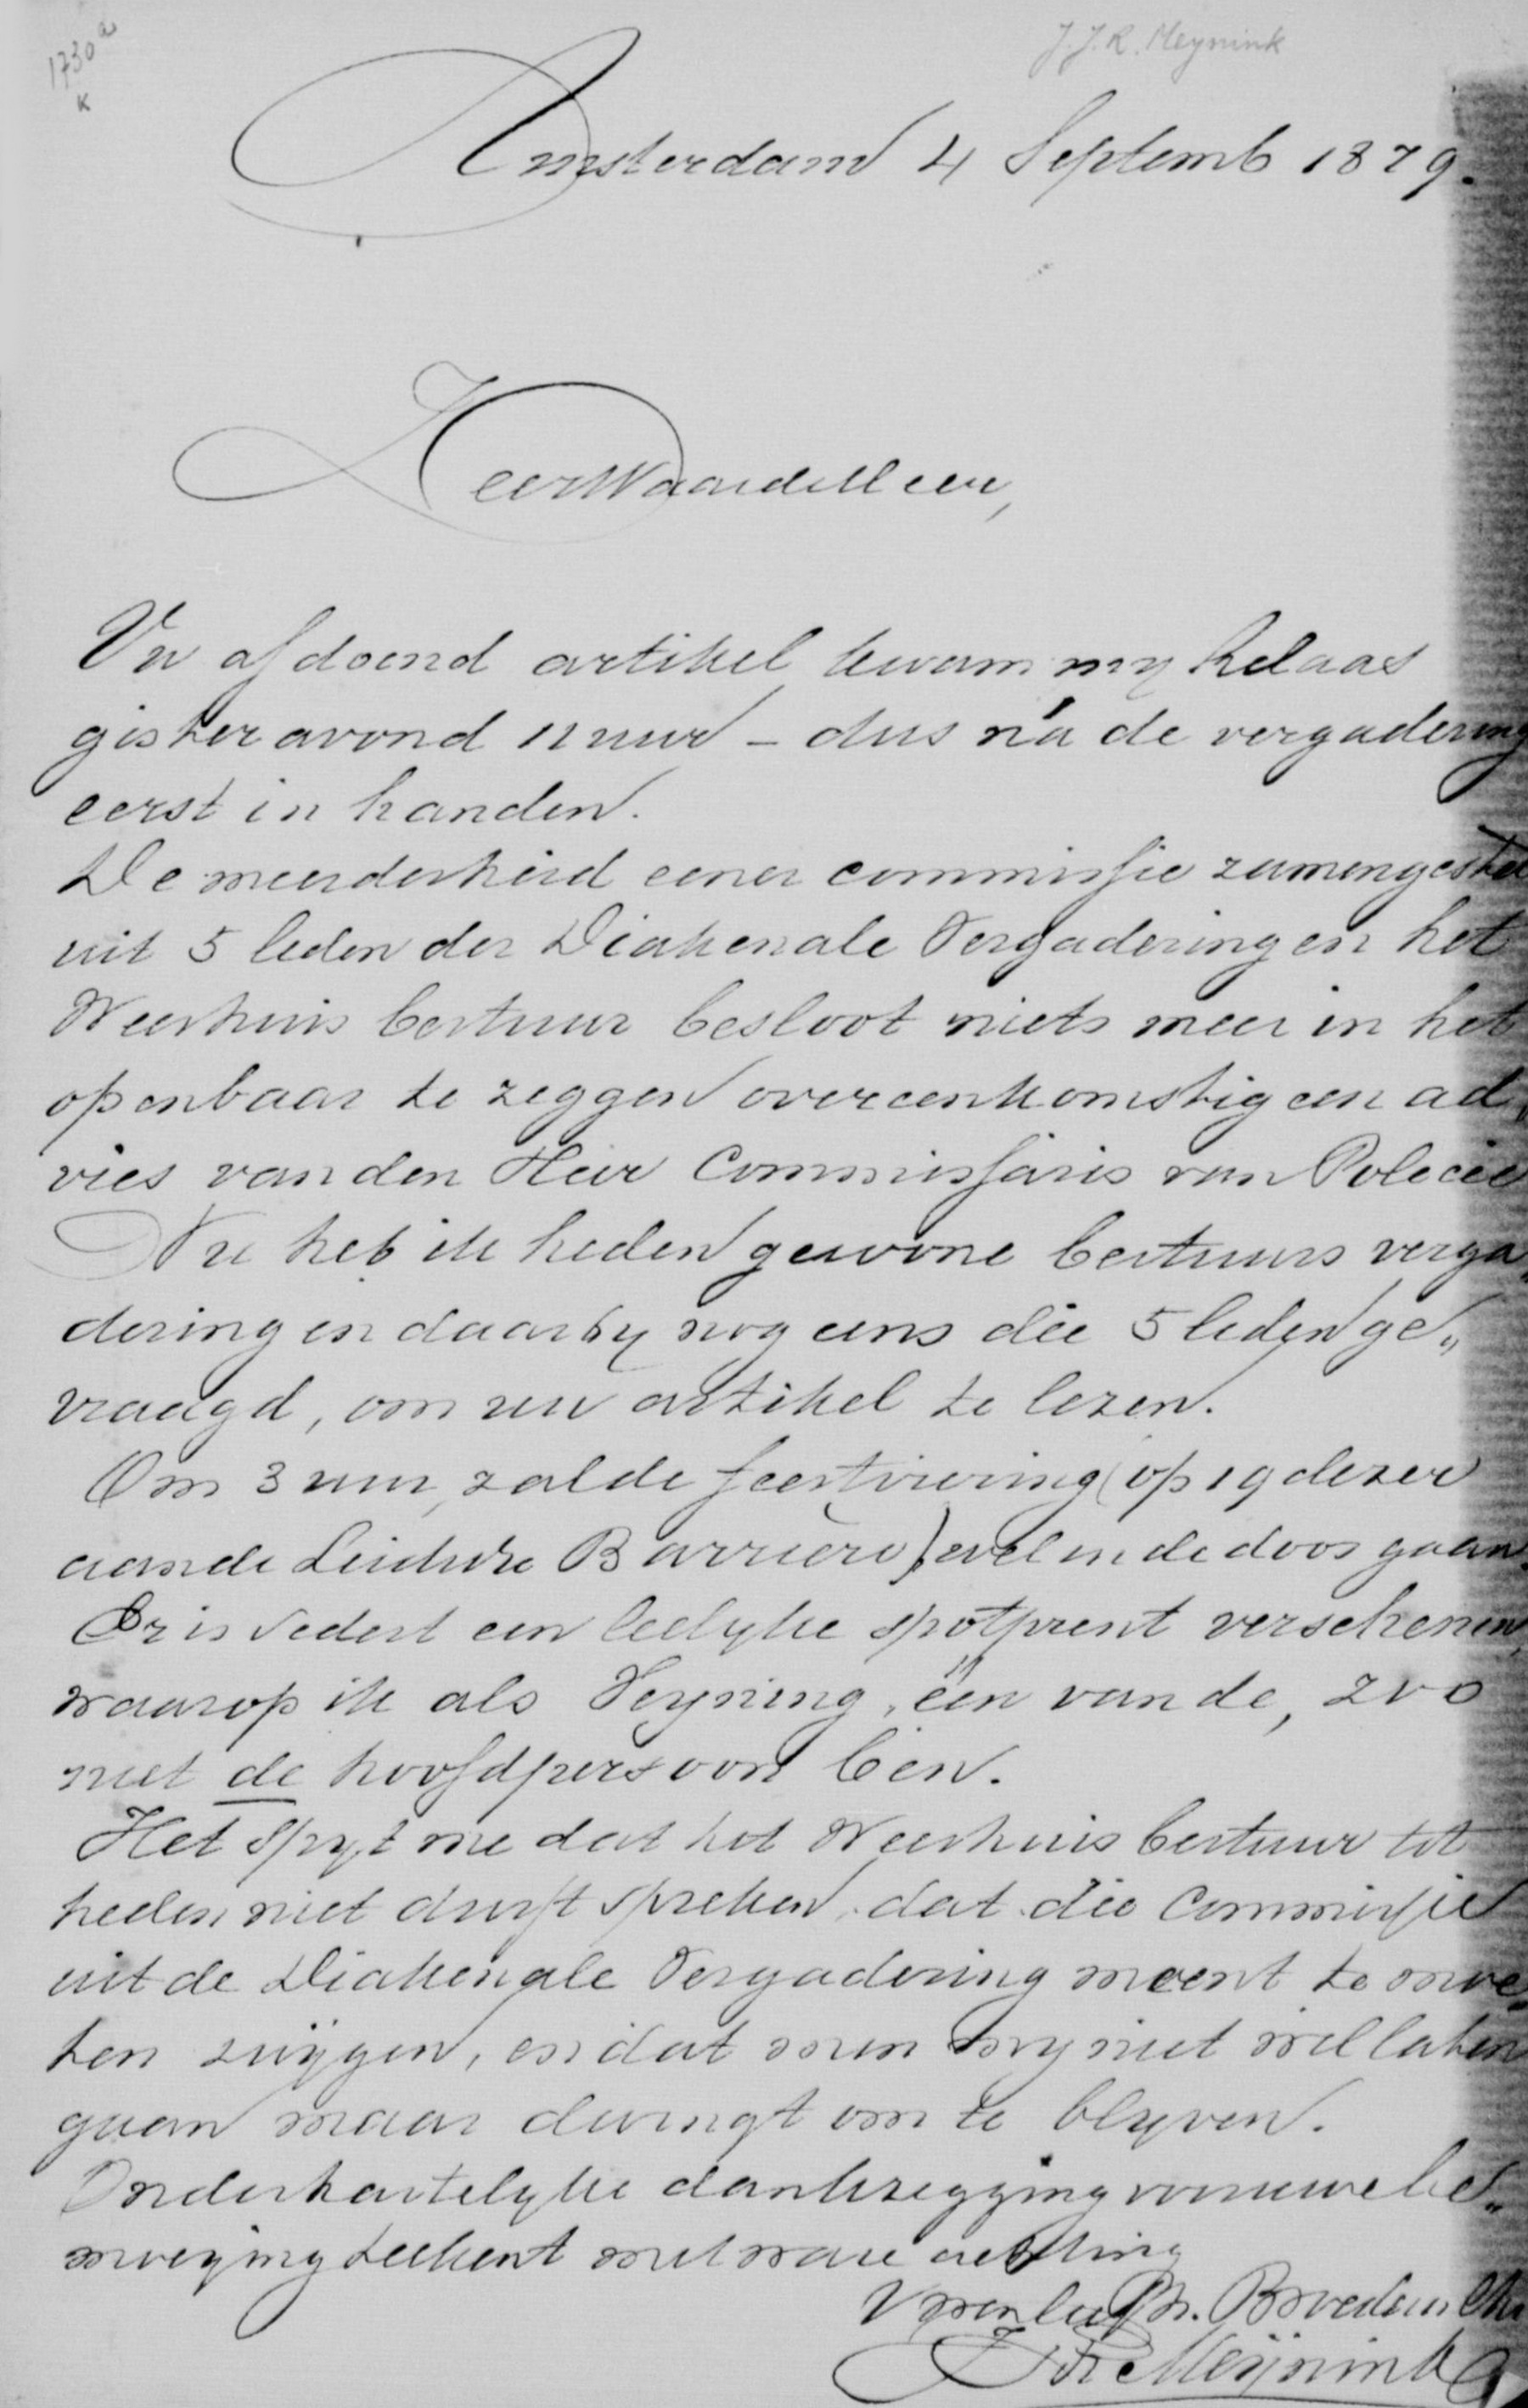 1730a
K
J. J. R. Meynink
Amsterdam 4 Septemb 1879.
ZeerWaardeHeer,
Uw afdoend artikel kwam my helaas
gisteravond 11 uur – dus ná de vergadering
eerst in handen.
De meerderheid eener commissie zamengestel
uit 5 leden der Diakenale Vergadering en het
Weeshuis bestuur besloot niets meer in het
openbaar te zeggen overeenkomstig een ad„
vies van den Heer Commissaris van Policie
Nu heb ik heden gewone bestuurs verga„
dering en daarby nog eens die 5 leden ge„
vraagd, om uw artikel te lezen.
Om 3 uur zal de feestviering (op 19 dezer
aan de Leidsche Barrière) wel in de doos gaan.
Er is reeds een leelyke spotprent verschenen,
waarop ik als Heyning, één van de, zoo
niet de hoofdpersoon ben.
Het spyt me dat het Weeshuis bestuur tot
heden niet durft spreken, dat die Commissie
uit de Diakenale Vergadering meent te moe„
ten zwijgen, en dat men my niet wil laten
gaan maar dwingt om te blyven.
Onder hartelyke dankzegging voor uwe be„
moeying teekent met ware achting
Uw Br. Broeder in Chr
JJR Meijnink